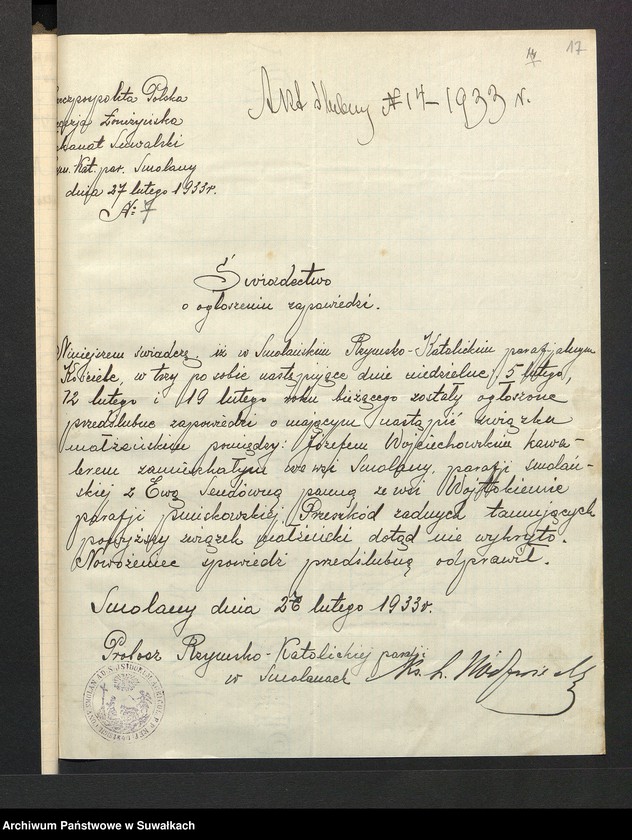 17
Akt ślubny № 14 – 1933 r.
Rzeczpospolita Polska
Łomżyńska
Dekanat Suwalski
Kat. par. Smolany
dnia 27 lutego 1933r.
№ 7
Świadectwo
o ogłoszeniu zapowiedzi.
Niniejszem świadczę, iż w Smolańskim Rzymsko-Katolickim parafjalnym
Kościele, w trzy po sobie następujące dnie niedzielne, 5 lutego,
12 lutego i 19 lutego roku bieżącego zostały ogłoszone
przedślubne zapowiedzi o mającym nastąpić związku
małżeńskim pomiędzy: Józefem Wojciechowskim kawa-
lerem zamieszkałym we wsi Smolany, parafji smolań-
skiej z Ewą panną ze wsi Wojtokiemie
parafji puńskowskiej. Przeszkód żadnych tamujących
powyższy związek małżeński dotąd nie wykryto.
Nowożeniec spowiedź przedślubną odprawił.
Smolany dnia 27 lutego 1933r.
Probosz Rzymsko-Katolickiej parafji
w Smolanach Ks.
Archiwum Państwowe w Suwałkach